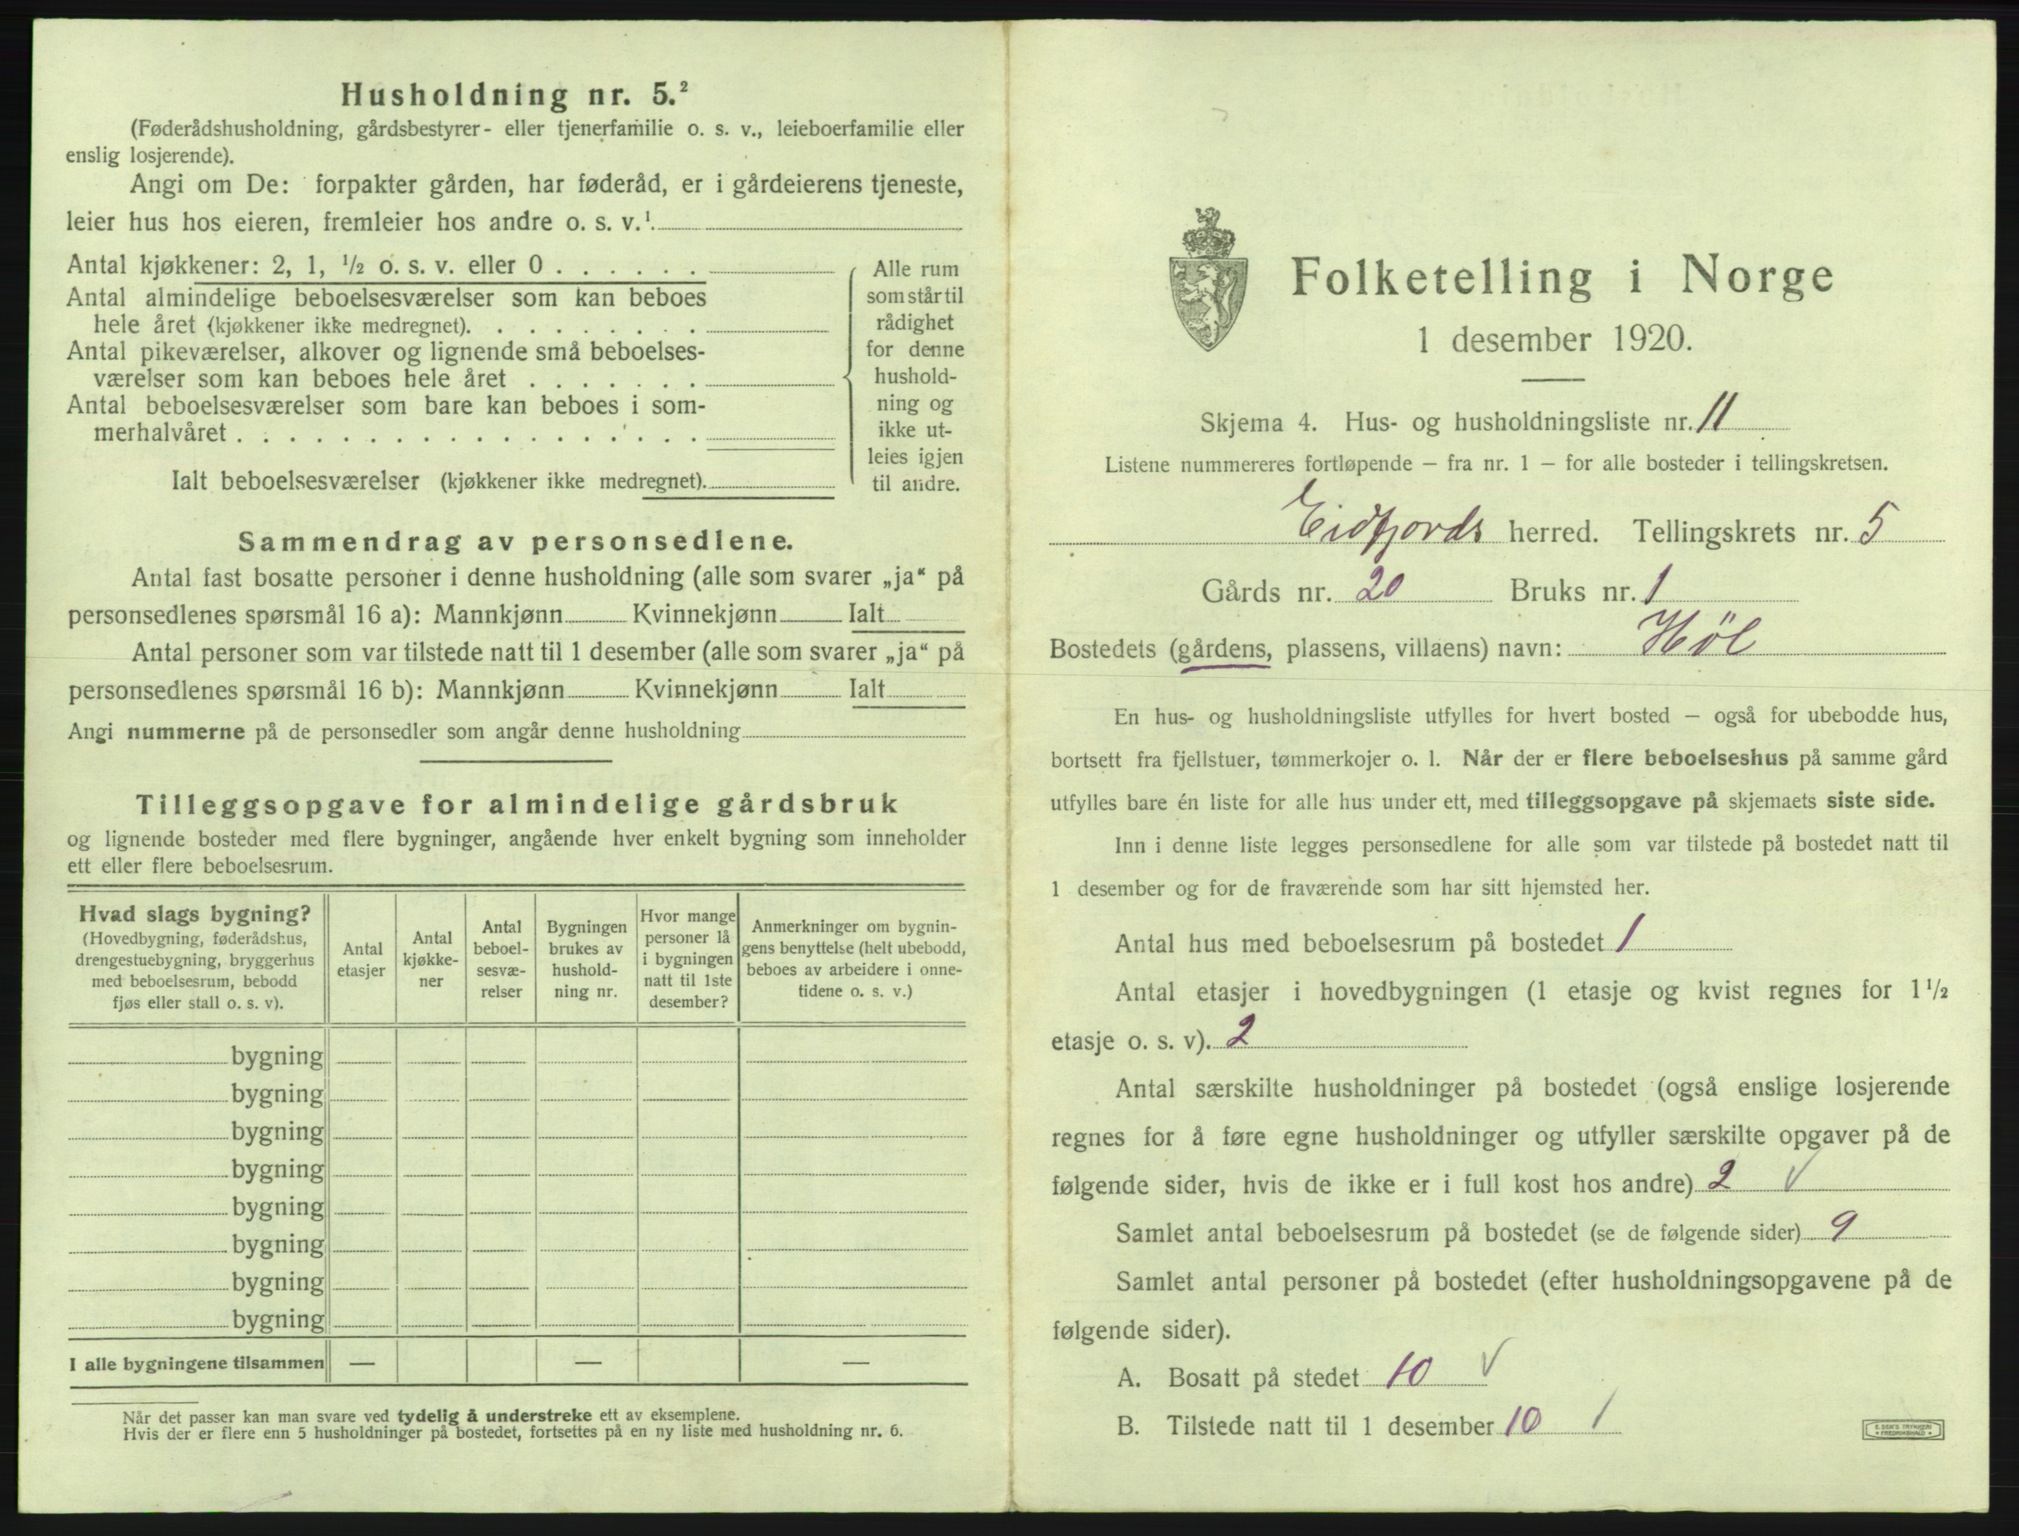 Husholdning nr. 5.²
(Føderådshusholdning, gårdsbestyrer- eller tjenerfamilie o. s. v., leieboerfamilie eller
enslig losjerende).
Angi om De: forpakter gården, har føderåd, er i gårdeierens tjeneste,
leier hus hos eieren, fremleier hos andre o. s. v.¹
Antal kjøkkener: 2, 1, ½ o. s. v. eller 0 . . . . . .
Antal almindelige beboelsesværelser som kan beboes
hele året (kjøkkener ikke medregnet). . . . . . . . .
Antal pikeværelser, alkover og lignende små beboelses-
værelser som kan beboes hele året . . . . . . .
Antal beboelsesværelser som bare kan beboes i som-
merhalvåret . . . . . . . . . . . . . . . . . .
Ialt beboelsesværelser (kjøkkener ikke medregnet).
Alle rum
som står til
rådighet
for denne
hushold-
ning og
ikke ut-
leies igjen
til andre.
Sammendrag av personsedlene.
Antal fast bosatte personer i denne husholdning (alle som svarer „ja“ på
personsedlenes spørsmål 16 a): Mannkjønn Kvinnekjønn Ialt
Antal personer som var tilstede natt til 1 desember (alle som svarer „ja“ på
personsedlenes spørsmål 16 b): Mannkjønn Kvinnekjønn Ialt
Angi nummerne på de personsedler som angår denne husholdning
Tilleggsopgave for almindelige gårdsbruk
og lignende bosteder med flere bygninger, angående hver enkelt bygning som inneholder
ett eller flere beboelsesrum.
Hvad slags bygning?
(Hovedbygning, føderådshus,
drengestuebygning, bryggerhus
med beboelsesrum, bebodd
fjøs eller stall o. s. v).
Antal
etasjer
Antal
kjøkke-
ner
Antal
beboel-
sesvæ-
relser
Bygningen
brukes av
hushold-
ning nr.
Hvor mange
personer lå
i bygningen
natt til 1ste
desember?
Anmerkninger om bygnin-
gens benyttelse (helt ubebodd,
beboes av arbeidere i onne-
tidene o. s. v.)
bygning
bygning
bygning
bygning
bygning
bygning
bygning
bygning
I alle bygningene tilsammen — — —
Når det passer kan man svare ved tydelig å understreke ett av eksemplene.
Hvis der er flere enn 5 husholdninger på bostedet, fortsettes på en ny liste med husholdning nr. 6.
Folketelling i Norge
1 desember 1920.
Skjema 4. Hus- og husholdningsliste nr. 11
Listene nummereres fortløpende – fra nr. 1 – for alle bosteder i tellingskretsen.
Eidfjords herred. Tellingskrets nr. 5
Gårds nr. 20 Bruks nr. 1
Bostedets (gårdens, plassens, villaens) navn: Høl
En hus- og husholdningsliste utfylles for hvert bosted – også for ubebodde hus,
bortsett fra fjellstuer, tømmerkojer o. l. Når der er flere beboelseshus på samme gård
utfylles bare én liste for alle hus under ett, med tilleggsopgave på skjemaets siste side.
Inn i denne liste legges personsedlene for alle som var tilstede på bostedet natt til
1 desember og for de fraværende som har sitt hjemsted her.
Antal hus med beboelsesrum på bostedet 1
Antal etasjer i hovedbygningen (1 etasje og kvist regnes for 1½
etasje o. s. v). 2
Antal særskilte husholdninger på bostedet (også enslige losjerende
regnes for å føre egne husholdninger og utfyller særskilte opgaver på de
følgende sider, hvis de ikke er i full kost hos andre) 2 √
Samlet antal beboelsesrum på bostedet (se de følgende sider) 9
Samlet antal personer på bostedet (efter husholdningsopgavene på de
følgende sider).
A. Bosatt på stedet 10 √
B. Tilstede natt til 1 desember 10 /